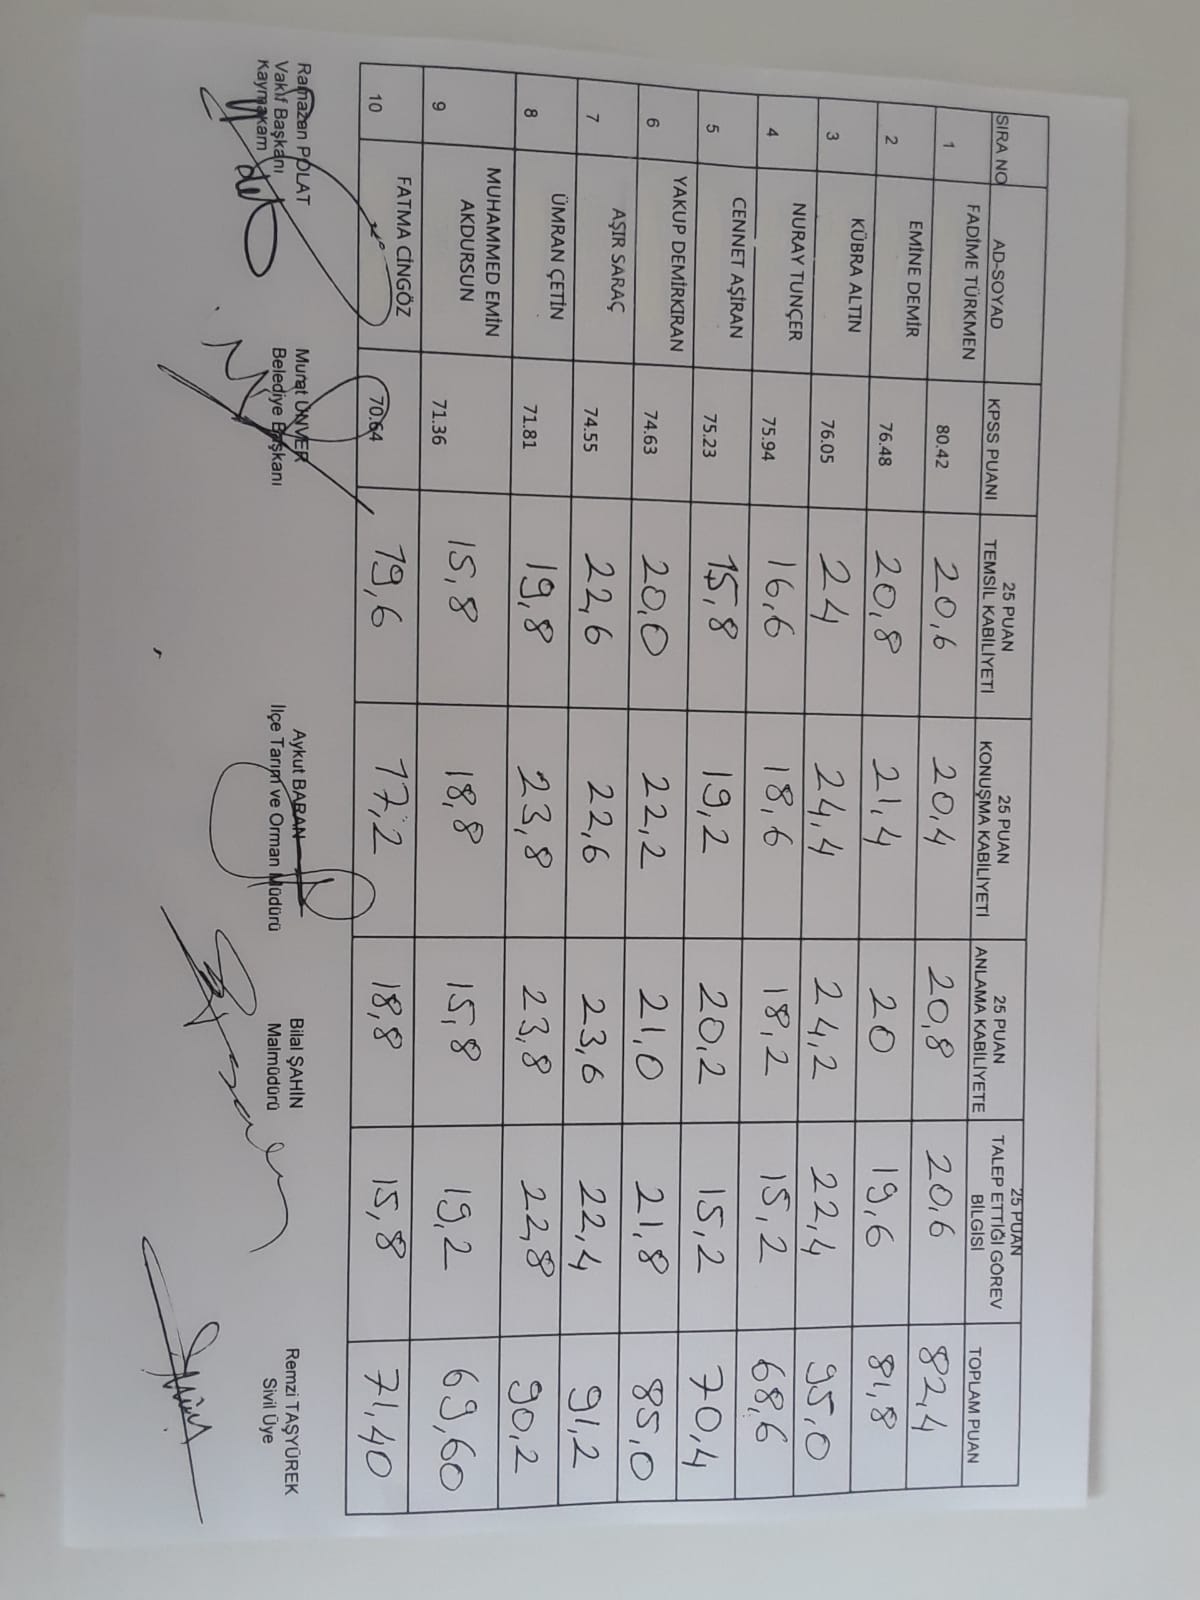 SIRA NO AD-SOYAD KPSS PUANI 25 PUAN TEMSİL KABİLİYETİ 25 PUAN KONUŞMA KABİLİYETİ 25 PUAN ANLAMA KABİLİYETE 25 PUAN TALEP ETTİĞİ GÖREV BİLGİSİ TOPLAM PUAN
1 FADİME TÜRKMEN 80.42 20,6 20,4 20,8 20,6 82,4
2 EMİNE DEMİR 76.48 20,8 21,4 20 19,6 81,8
3 KÜBRA ALTIN 76.05 24 24,4 24,2 22,4 95,0
4 NURAY TUNÇER 75.94 16,6 18,6 18,2 15,2 68,6
5 CENNET AŞİRAN 75.23 15,8 19,2 20,2 15,2 70,4
6 YAKUP DEMİRKIRAN 74.63 20,0 22,2 21,0 21,8 85,0
7 AŞIR SARAÇ 74.55 22,6 22,6 23,6 22,4 91,2
8 ÜMRAN ÇETİN 71.81 19,8 23,8 23,8 22,8 90,2
9 MUHAMMED EMİN AKDURSUN 71.36 15,8 18,8 15,8 19,2 69,60
10 FATMA CİNGÖZ 70.64 19,6 17,2 18,8 15,8 71,40
Ramazan POLAT
Vakıf Başkanı
Kaymakam
Murat ÜNVER
Belediye Başkanı
Aykut BARAN
İlçe Tarım ve Orman Müdürü
Bilal ŞAHİN
Malmüdürü
Remzi TAŞYÜREK
Sivil Üye